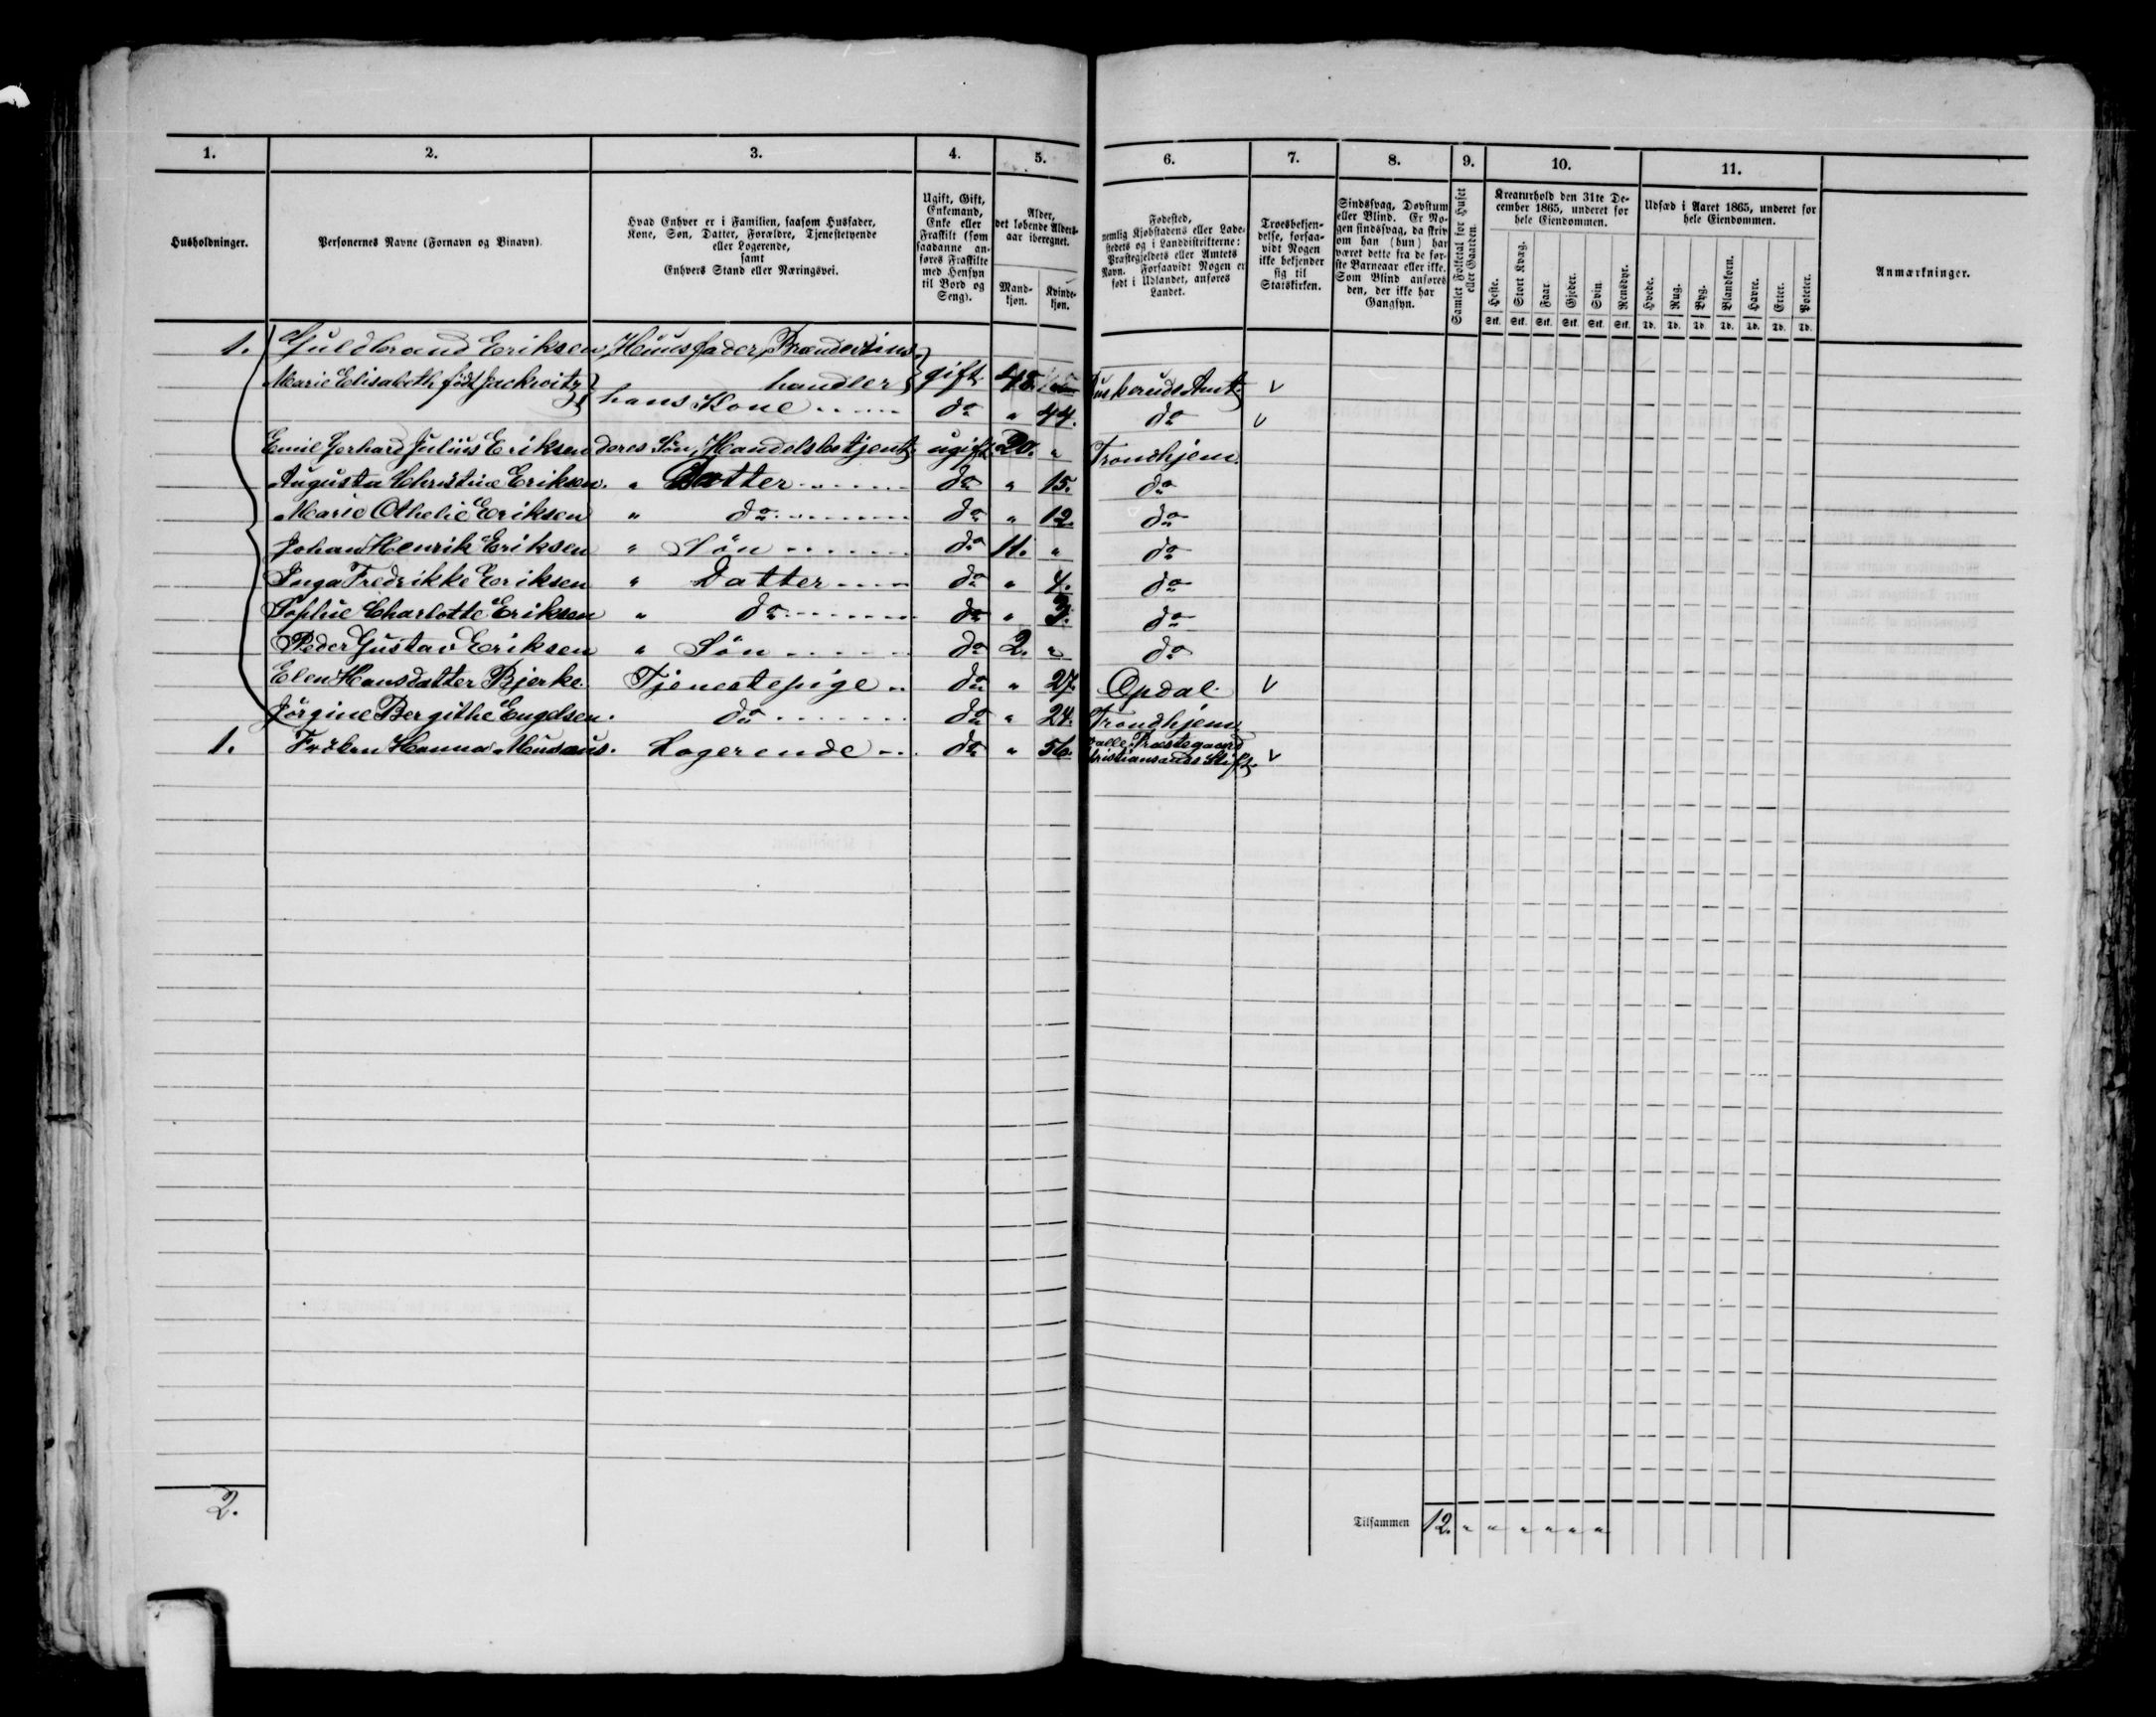 1. 2. 3. 4. 5. 6. 7. 8. 9. 10. 11.
Husholdninger.
Personernes Navne (Fornavn og Binavn).
Hvad Enhver er i Familien, saasom Husfader,
Kone, Søn, Datter, Forældre, Tjenestetyende
eller Logerende,
samt
Enhvers Stand eller Næringsvei.
Ugift, Gift,
Enkemand,
Enke eller
Fraskilt (som
saadanne an-
føres Fraskilte
med Hensyn
til Bord og
Seng).
Alder,
det løbende Alders-
aar iberegnet.
Mand-
kjøn.
Kvinde-
kjøn.
Fødested,
nemlig Kjøbstadens eller Lade-
stedets og i Landdistrikterne:
Præstegjeldets eller Amtets
Navn. Forsaavidt Nogen er
født i Udlandet, anføres
Landet.
Troesbekjen-
delse, forsaa-
vidt Nogen
ikke bekjender
sig til
Statskirken.
Sindssvag, Døvstum
eller Blind. Er No-
gen sindssvag, da skriv
om han (hun) har
været dette fra de før-
ste Barneaar eller ikke.
Som Blind anføres
den, der ikke har
Gangsyn.
Samlet Folketal for Huset
eller Gaarden.
Kreaturhold den 31te De-
cember 1865, underet for
hele Eiendommen.
Heste. Stort Kvæg. Faar. Gjeder. Svin. Rensdyr.
Stk. Stk. Stk. Stk. Stk. Stk.
Udsæd i Aaret 1865, underet for
hele Eiendommen.
Hvede. Rug. Byg. Blandkorn. Havre. Erter. Poteter.
Td. Td. Td. Td. Td. Td. Td.
Anmærkninger.
1. Guldbrand Eriksen, Huusfader, Brændeviins-
handler gift 48. Buskeruds Amt. v
Marie Elisabeth født Jackwitz hans Kone do " 44. do v
Emil Gerhard Julius Eriksen deres Søn, Handelsbetjent ugift 20. " Trondhjem.
Augusta Christine Eriksen. " Datter do " 15. do
Marie Othelie Eriksen " do do " 12. do
Johan Henrik Eriksen " Søn do 11. " do
Inga Fredrikke Eriksen " Datter do " 4. do
Sophie Charlotte Eriksen " do do " 3. do
Peder Gustav Eriksen " Søn do 2. " do
Elen Hansdatter Bjerke Tjenestepige do " 27. Opdal. v
Jörgine Bergithe Engelsen. do do " 24. Trondhjem
1. Fröken Hanna Musæus. Logerende do " 56. Valle Præstegaard
Christiansands Stift. v
2.
Tilsammen 12. " " " " " "